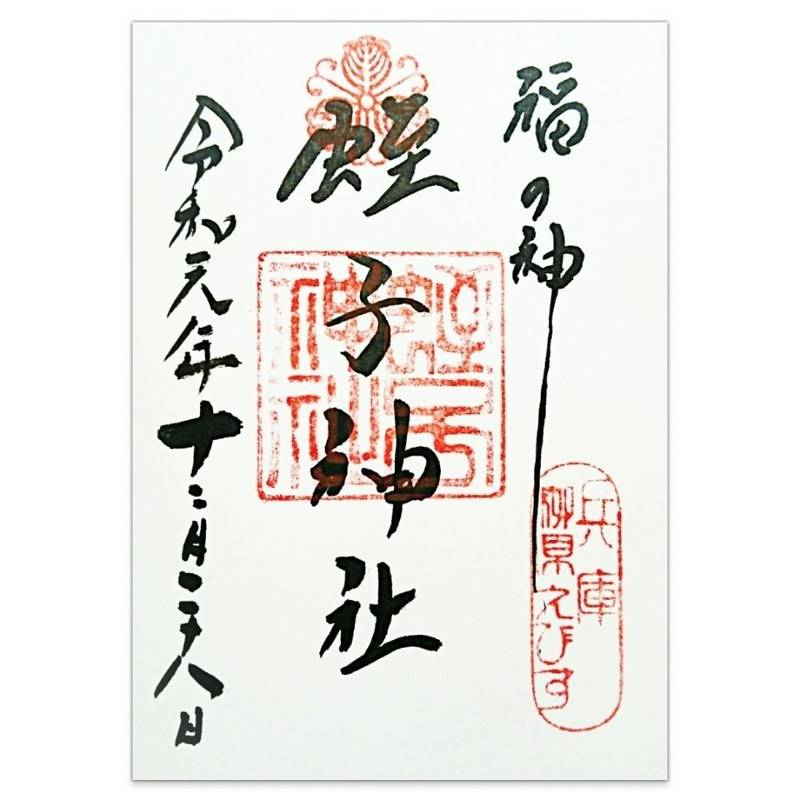 福の神
兵庫
柳原えびす
蛭子神社
蛭子神社
令和元年十二月二十八日